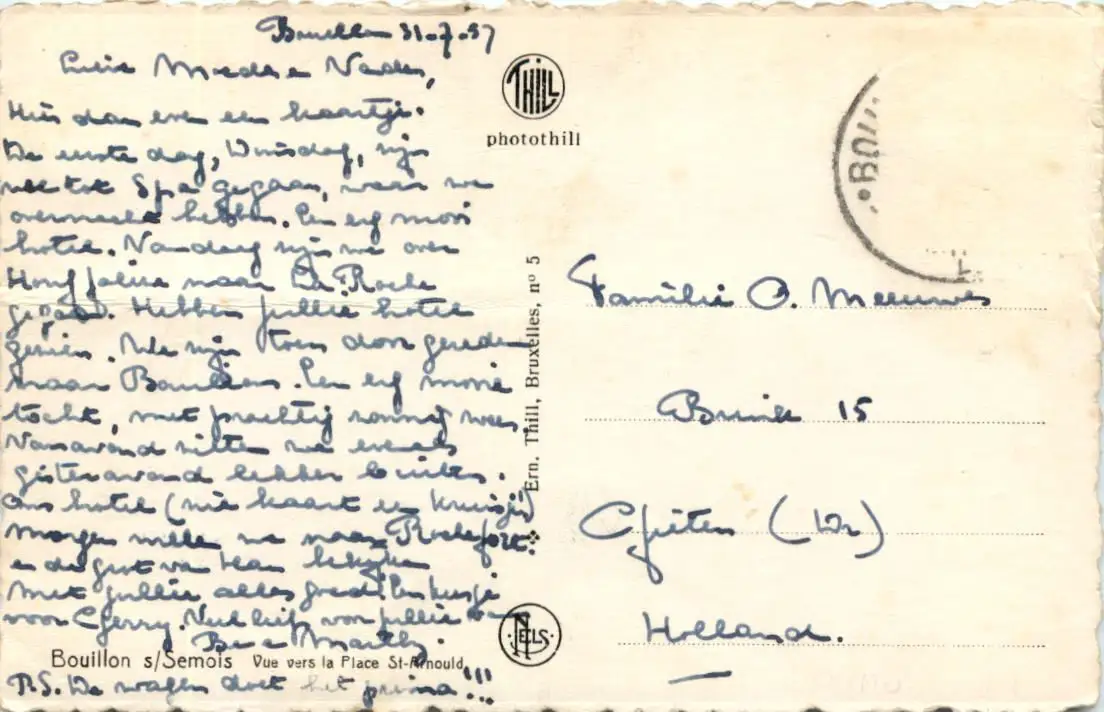 Bouillon 31-7-57
Lieve Moeder en Vader,
Hier dan even een kaartje.
De eerste dag, Dinsdag, zijn
we tot Spa gegaan, waar we
overnacht hebben. Een erg mooi
hotel. Vandaag zijn we over
Houffalize naar La Roche
gegaan. Hebben jullie hotel
gezien. We zijn toen door gereden
naar Bouillon. Een erg mooie
tocht, met prachtig zonnig weer.
Vanavond zitten we evenals
gisteravond lekker buiten.
Ons hotel (zie kaart een kruisje)
Morgen willen we naar Rochefort
en de grot van Han bekijken
Met jullie alles goed? Een kusje
voor Gerry. Veel liefs voor jullie van
Be en Marthy.
P.S. De wagen doet het prima!!!
Bouillon s/Semois Vue vers la Place St-Arnould
THILL
photothill
Ern. Thill, Bruxelles, nº 5
NELS
BOUI
Familie O. Meeuwes
Brink 15
Gieten (Dr)
Holland.